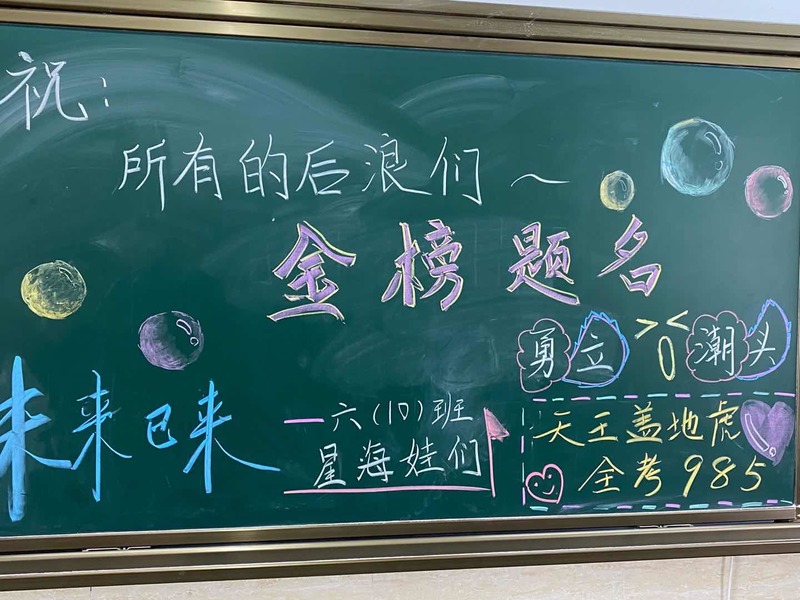 祝:
所有的后浪们~
金榜题名
勇立潮头
未来已来
六(10)班
星海娃们
天王盖地虎
全考985